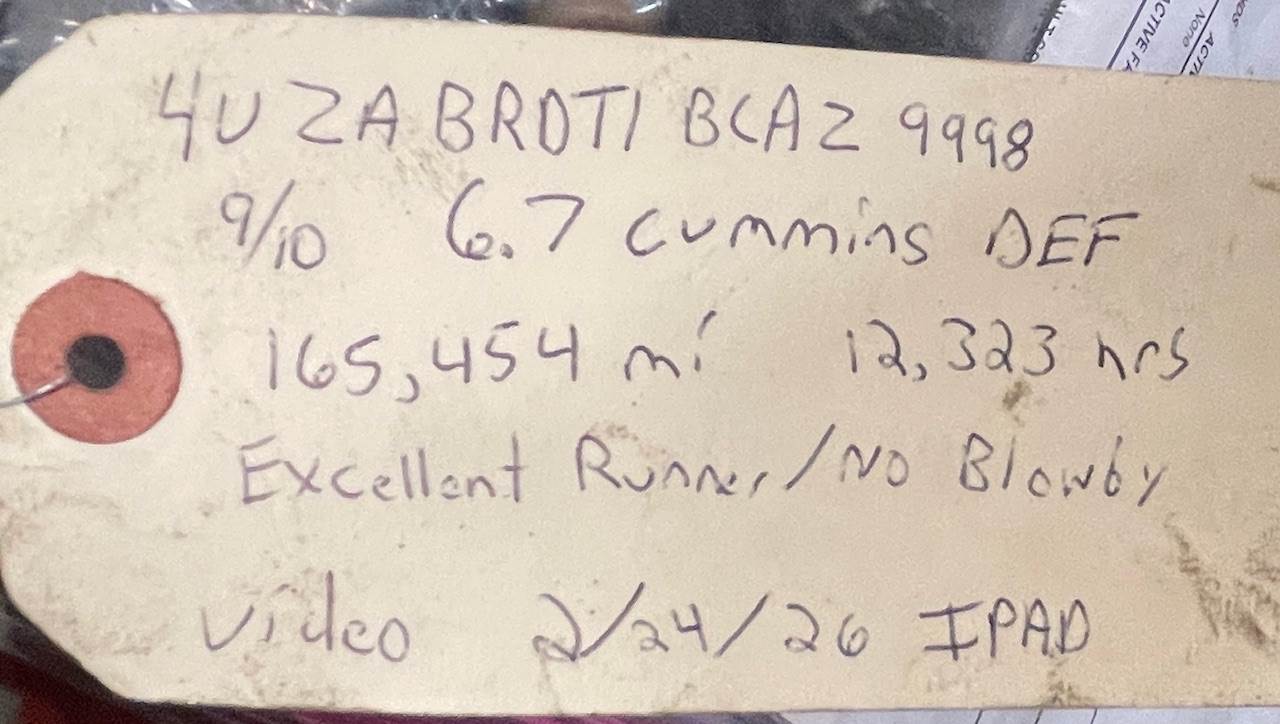 4UZABRDT1BCAZ9998
9/10 6.7 cummins DEF
165,454 mi 12,323 hrs
Excellent Runner/No Blowby
video 2/24/26 IPAD
ACTIVE FA
None
ACTI